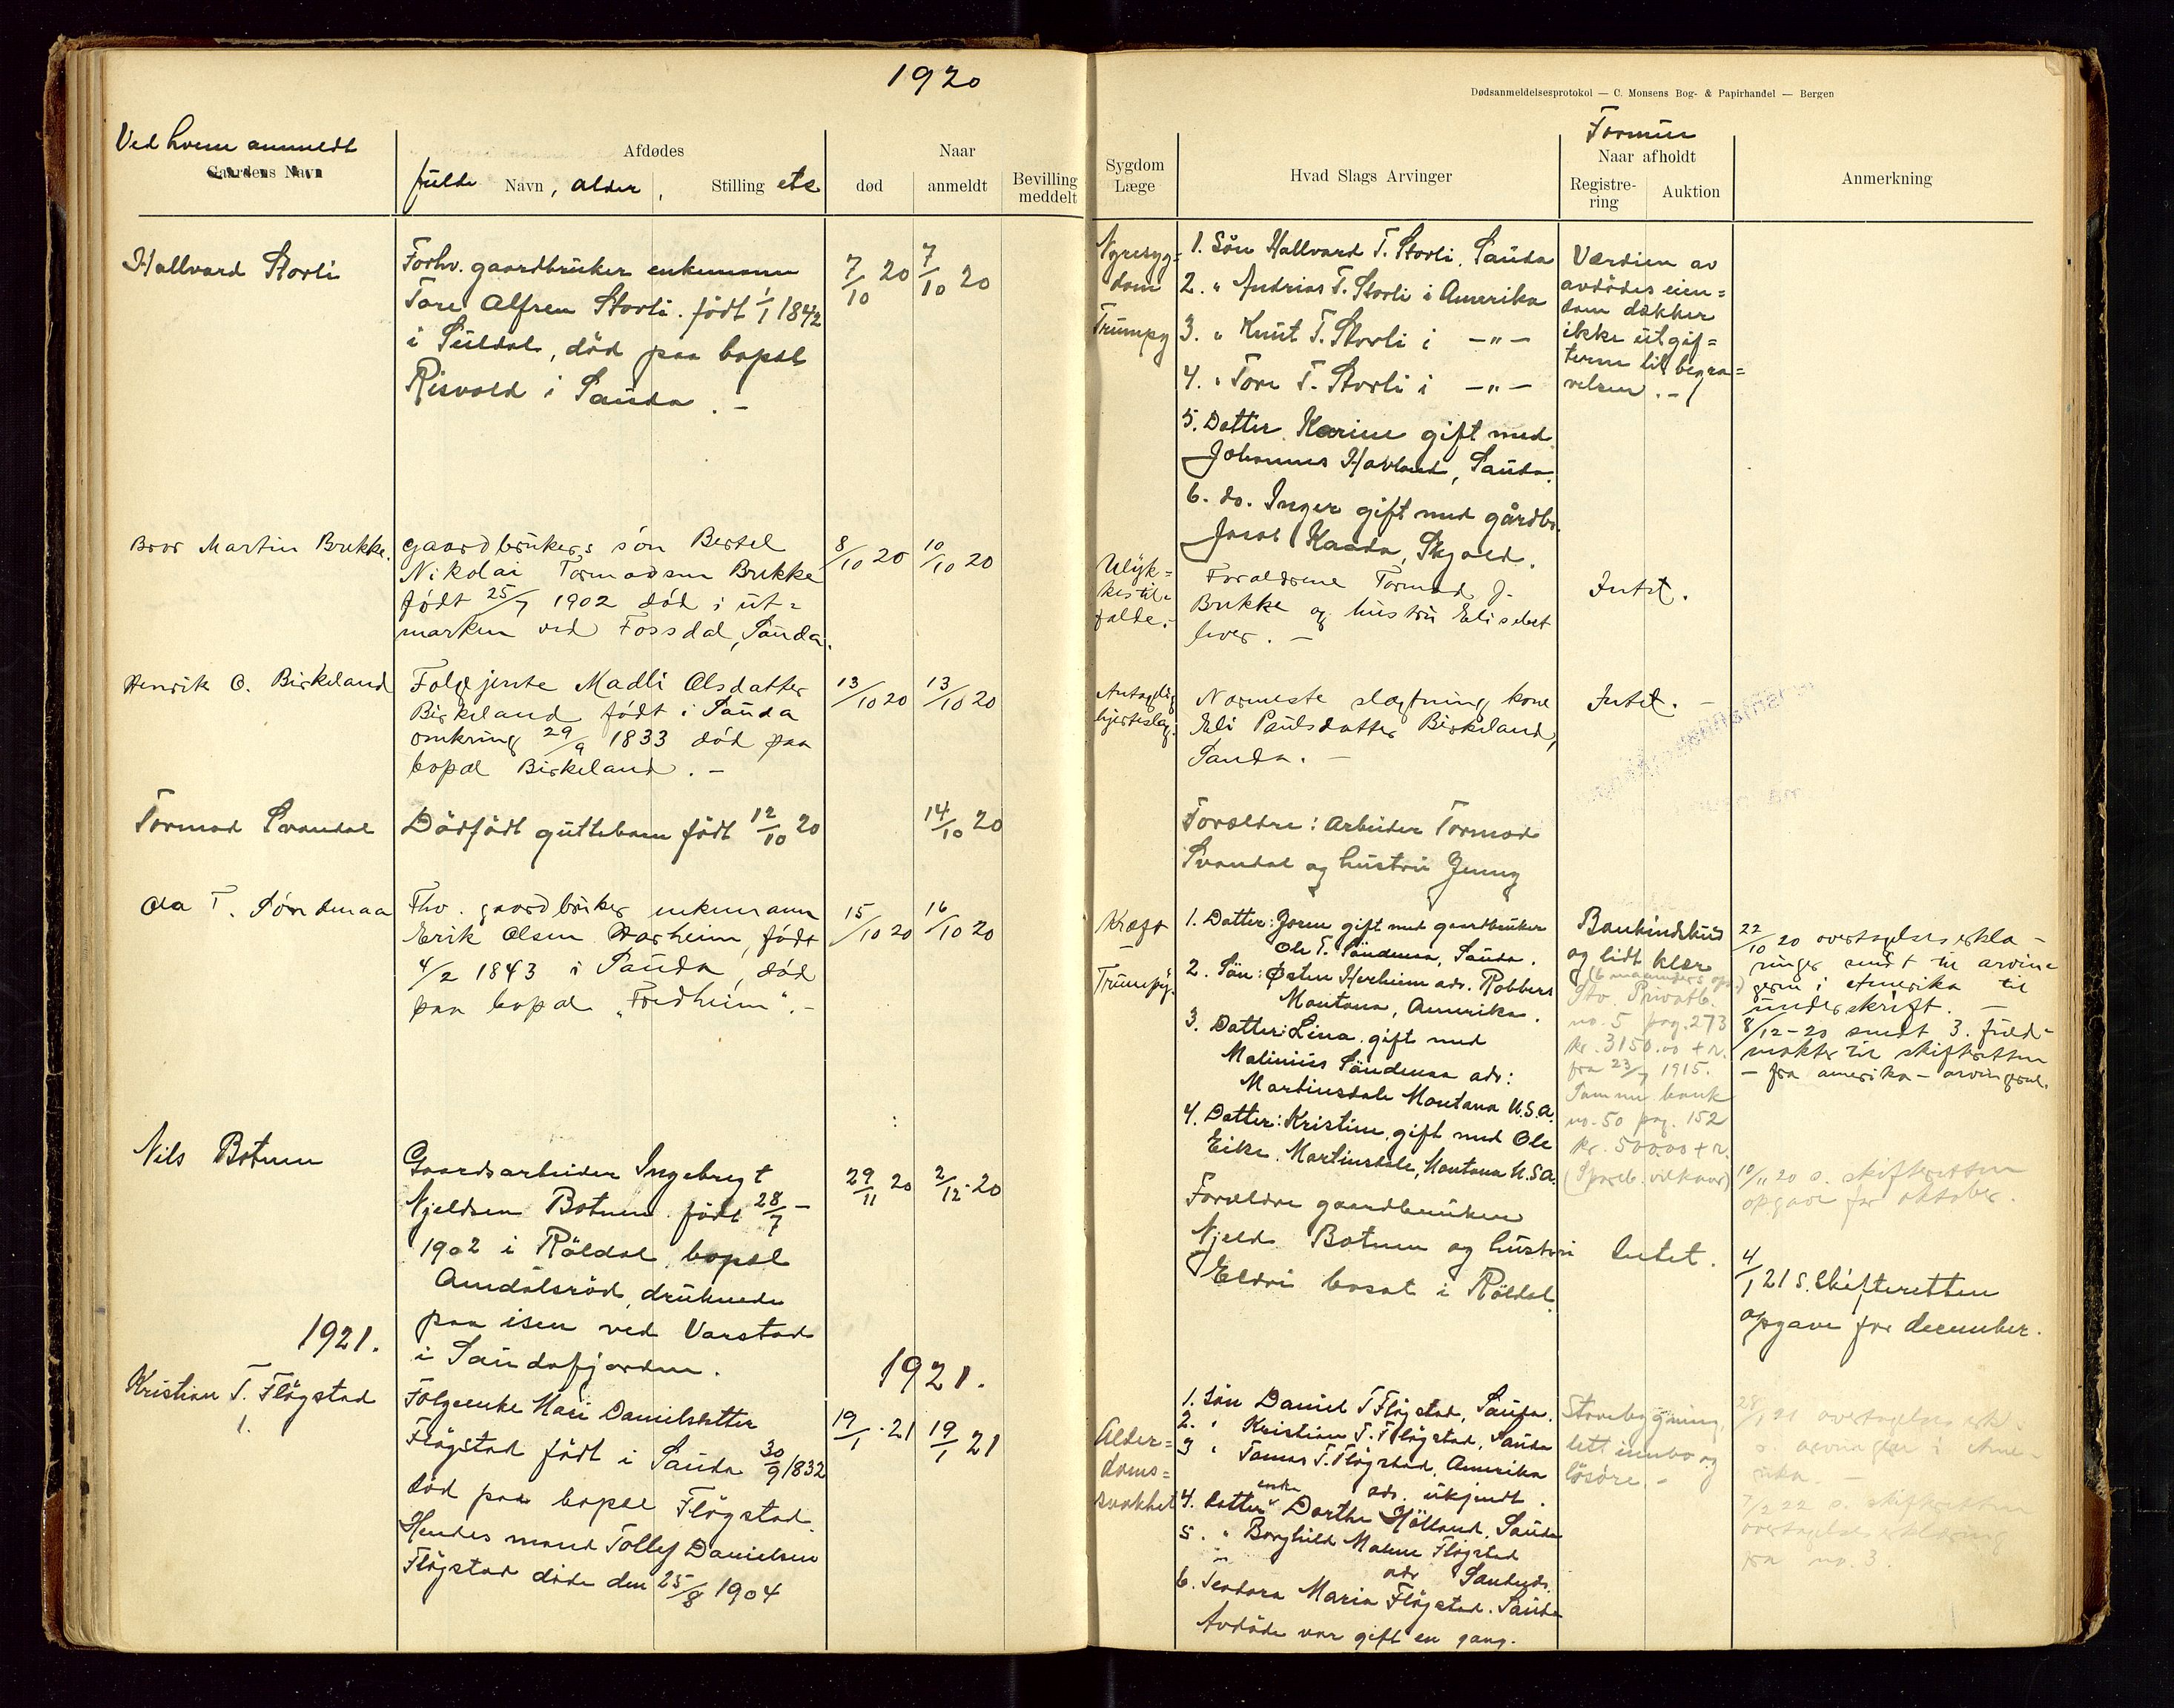 1920
Dødsanmeldelsesprotokol — C. Monsens Bog- & Papirhandel — Bergen
Ved hvem anmeldt
Gaardens Navn
Afdødes
fulde Navn, alder, Stilling etc
Naar
død anmeldt Bevilling meddelt
Sygdom
Læge
Hvad Slags Arvinger
Formue
Naar afholdt
Registre-
ring
Auktion
Anmerkning
Hallvard Storli
Forhv. gaardbruker enkemann
Tore Alfsen Storli. født 1/1 1842
i Suldal, død paa bopæl
Risvold i Sauda. -
7/10 20
7/10 20
Nyresyg-
dom
Trumpy
1. Søn Hallvard T. Storli, Sauda
2. " Andrias T. Storli i Amerika
3. " Knut T. Storli i -"-
4. " Tore T. Storli i -"-
5. Datter Karine gift med
Johannes Havland, Sauda.
6. do. Inger gift med gårdbr.
Jacob Kaada, Skjold.
Værdien av
avdødes eien=
dom dækker
ikke utgif=
terne til begra=
velsen. -
Bror Martin Brekke.
gaardbrukers søn Bertel
Nikolai Tormodsen Brekke
født 25/7 1902 død i ut=
marken ved Fossdal, Sauda.
8/10 20
10/10 20
Ulyk=
kestil=
fælde.
Forældrene Tormod J.
Brekke og hustru Elisebet
lever. -
Intet.
Henrik O. Birkeland
Følgejente Madli Olsdatter
Birkeland født i Sauda
omkring 29/9 1833 død paa
bopæl Birkeland. -
13/10 20
13/10 20
Antagelig
hjerteslag.
Nærmeste slægtning kone
Eli Paulsdatter Birkeland,
Sauda. -
Intet. -
Tormod Svandal
Dødfødt guttebarn født 12/10 20
14/10 20
Forældre: Arbeider Tormod
Svandal og hustru Jenny
Ola T. Søndenaa
Fhv. gaardbruker enkemann
Erik Olsen Harheim, født
4/2 1843 i Sauda, død
paa bopæl "Fredheim". -
15/10 20
16/10 20
Kræft
Trumpy.
1. Datter: gift med gaardbruker
Ole T. Søndenaa, Sauda.
2. Søn: Østen Herheim adr. Robbers
Montana, Amerika.
3. Datter: Lina gift med
Malinius Søndenaa adr:
Martinsdale Montana U.S.A.
4. Datter: Kristine, gift med Ole
Eike, Martinsdale, Montana U.S.A.
og lidt klær
(6 maaneders op.)
Stv. Privatb.
no. 5 pag. 273
kr. 3150.00 + r.
fra 23/7 1915.
Samme bank
no. 50 pag. 152
kr. 500.00 + r.
(Spareb. vilkaar)
22/10 20 overtagelseserklæ-
ringer sendt til arvin-
gerne i Amerika til
underskrift. -
8/12-20 sendt 3. fuld-
makter til skifteretten
- fra amerika-arvingene.
10/11 20 s. skifteretten
opgave for oktober.
Nils Botnen
Gaardsarbeider Ingebrigt
Njeldsen Botnen født 28/7 -
1902 i Røldal, bopæl
Amdalsrød, druknede
paa isen ved Varstad
i Saudafjorden.
29/11 20
2/12 20
Forældre gaardbruker
Njeld Botnen og hustru
Eldri bosat i Røldal.
Intet.
4/1 21 s. skifteretten
opgave for december.
1921.
1921.
Kristian T. Fløgstad
1.
Følgeenke Mari Danielsdatter
Fløgstad født i Sauda 30/9 1832
død paa bopæl Fløgstad.
Hendes mand Tollef Danielsen
Fløgstad døde den 25/8 1904
19/1 21
19/1 21
Alder=
doms=
svakhet
1. Søn Daniel T Fløgstad, Sauda.
2. " Kristian T. Fløgstad, Sauda
3 " Tomas T. Fløgstad, Amerika
adr. ukjendt.
4. datter enke Dorthe Hölland, Sauda
5. " Borghild Malene Fløgstad
adr
6. Teodora Maria Fløgstad. Sauda
Avdøde var gift en gang.
Stovebygning,
litt innbo og
løsøre. -
28/1 21 overtagelseserkl.
s. arvinger i Ame-
rika. -
7/2 22 s. skifteretten
overtagelseserklæring
fra no. 3.